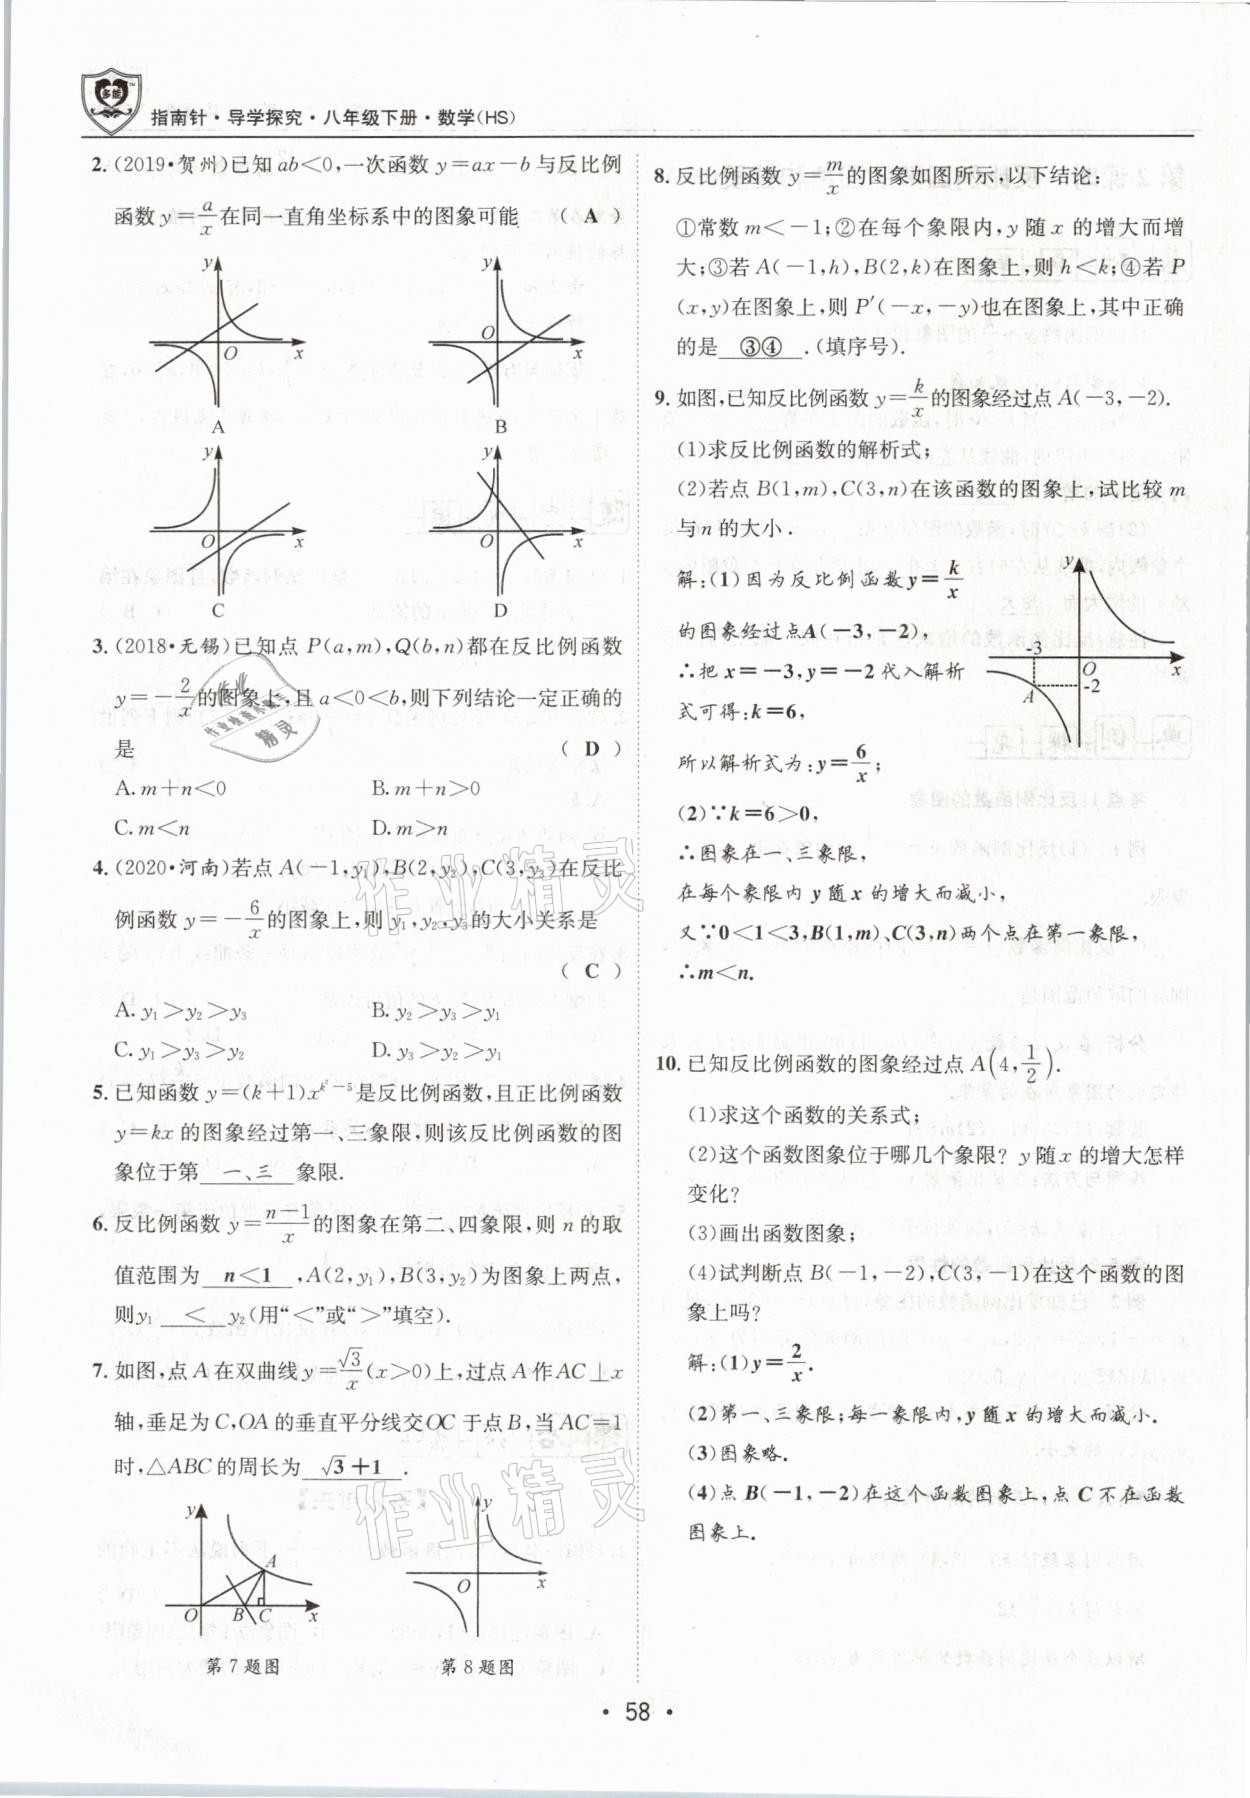 多能
指南针·导学探究·八年级下册·数学(HS)
2.(2019·贺州)已知ab<0,一次函数 y=ax-b与反比例
函数 y=a/x 在同一直角坐标系中的图象可能 ( A )
y
O
x
A
y
O
x
B
y
O
x
C
y
O
x
D
3.(2018·无锡)已知点 P(a,m),Q(b,n)都在反比例函数
y=-2/x的图象上,且 a<0<b,则下列结论一定正确的
是 ( D )
A. m+n<0 B. m+n>0
C. m<n D. m>n
4.(2020·河南)若点 A(-1,y₁),B(2,y₂),C(3,y₃)在反比
例函数 y=-6/x的图象上,则 y₁,y₂,y₃的大小关系是
( C )
A. y₁>y₂>y₃ B. y₂>y₃>y₁
C. y₁>y₃>y₂ D. y₃>y₂>y₁
5.已知函数 y=(k+1)x^(k²-5)是反比例函数,且正比例函数
y=kx 的图象经过第一、三象限,则该反比例函数的图
象位于第 一、三 象限.
6.反比例函数 y=(n-1)/x的图象在第二、四象限,则 n 的取
值范围为 n<1 ,A(2,y₁),B(3,y₂)为图象上两点,
则y₁ < y₂(用“<”或“>”填空).
7.如图,点 A 在双曲线 y=√3/x(x>0)上,过点 A 作 AC⊥x
轴,垂足为 C,OA 的垂直平分线交OC 于点 B,当 AC=1
时,△ABC 的周长为 √3+1 .
y
A
O B C x
第7题图
y
O
x
第8题图
8.反比例函数 y=m/x的图象如图所示,以下结论:
①常数 m<-1;②在每个象限内,y 随 x 的增大而增
大;③若 A(-1,h),B(2,k)在图象上,则 h<k;④若 P
(x,y)在图象上,则 P′(-x,-y)也在图象上,其中正确
的是 ③④ .(填序号).
9.如图,已知反比例函数 y=k/x的图象经过点 A(-3,-2).
(1)求反比例函数的解析式;
(2)若点 B(1,m),C(3,n)在该函数的图象上,试比较 m
与 n 的大小.
解:(1)因为反比例函数 y=k/x
的图象经过点A(-3,-2),
∴把 x=-3,y=-2 代入解析
式可得:k=6,
所以解析式为:y=6/x;
y
-3
O
x
A
-2
(2)∵k=6>0,
∴图象在一、三象限,
在每个象限内 y 随 x 的增大而减小,
又∵0<1<3,B(1,m)、C(3,n)两个点在第一象限,
∴m<n.
10.已知反比例函数的图象经过点 A(4,1/2).
(1)求这个函数的关系式;
(2)这个函数图象位于哪几个象限? y 随 x 的增大怎样
变化?
(3)画出函数图象;
(4)试判断点 B(-1,-2),C(3,-1)在这个函数的图
象上吗?
解:(1)y=2/x.
(2)第一、三象限;每一象限内,y 随 x 的增大而减小.
(3)图象略.
(4)点 B(-1,-2)在这个函数图象上,点 C 不在函数
图象上.
作业精灵
作业精灵
·58·